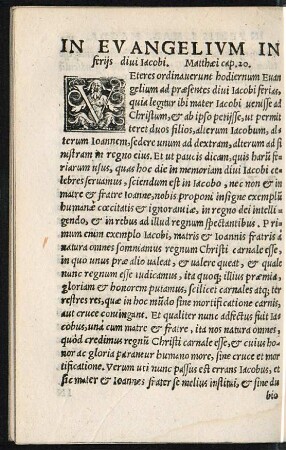 IN EVANGELIVM IN
ferijs diui Iacobi. Matthæi cap. 20.
VEteres ordinauerunt hodiernum Euan
gelium ad præsentes diui Iacobi ferias,
quia legitur ibi mater Iacobi uenisse ad
Christum, & ab ipso petijsse, ut permit
teret duos filios, alterum Iacobum, al-
terum Ioannem, sedere unum ad dextram, alterum ad si
nistram in regno eius. Et ut paucis dicam, quis harũ fe-
riarum usus, quas hoc die in memoriam diui Iacobi ce-
lebres seruamus, sciendum est in Iacobo, nec non & in
matre & fratre Ioanne, nobis proponi insigne exemplũ
humanæ cœcitatis & ignorantiæ, in regno dei intelli-
gendo, & in rebus ad illud regnum spectantibus. Pri-
mum enim exemplo Iacobi, matris & Ioannis fratris à
natura omnes somniamus regnum Christi carnale esse,
in quo unus præ alio ualeat, & ualere queat, & quale
nunc regnum esse iudicamus, ita quoq; illius præmia,
gloriam & honorem putamus, scilicet carnales atq; ter
restres res, quæ in hoc mũdo sine mortificatione carnis,
aut cruce contingant. Et qualiter nunc adfectus fuit Ia-
cobus, unà cum matre & fratre, ita nos natura omnes,
quòd credimus regnũ Christi carnale esse, & cuius ho-
nor ac gloria paraneur humano more, sine cruce et mor
tificatione. Verum uti nunc passus est errans Iacobus, et
sic mater & Ioannes frater se melius institui, & sine du
bio